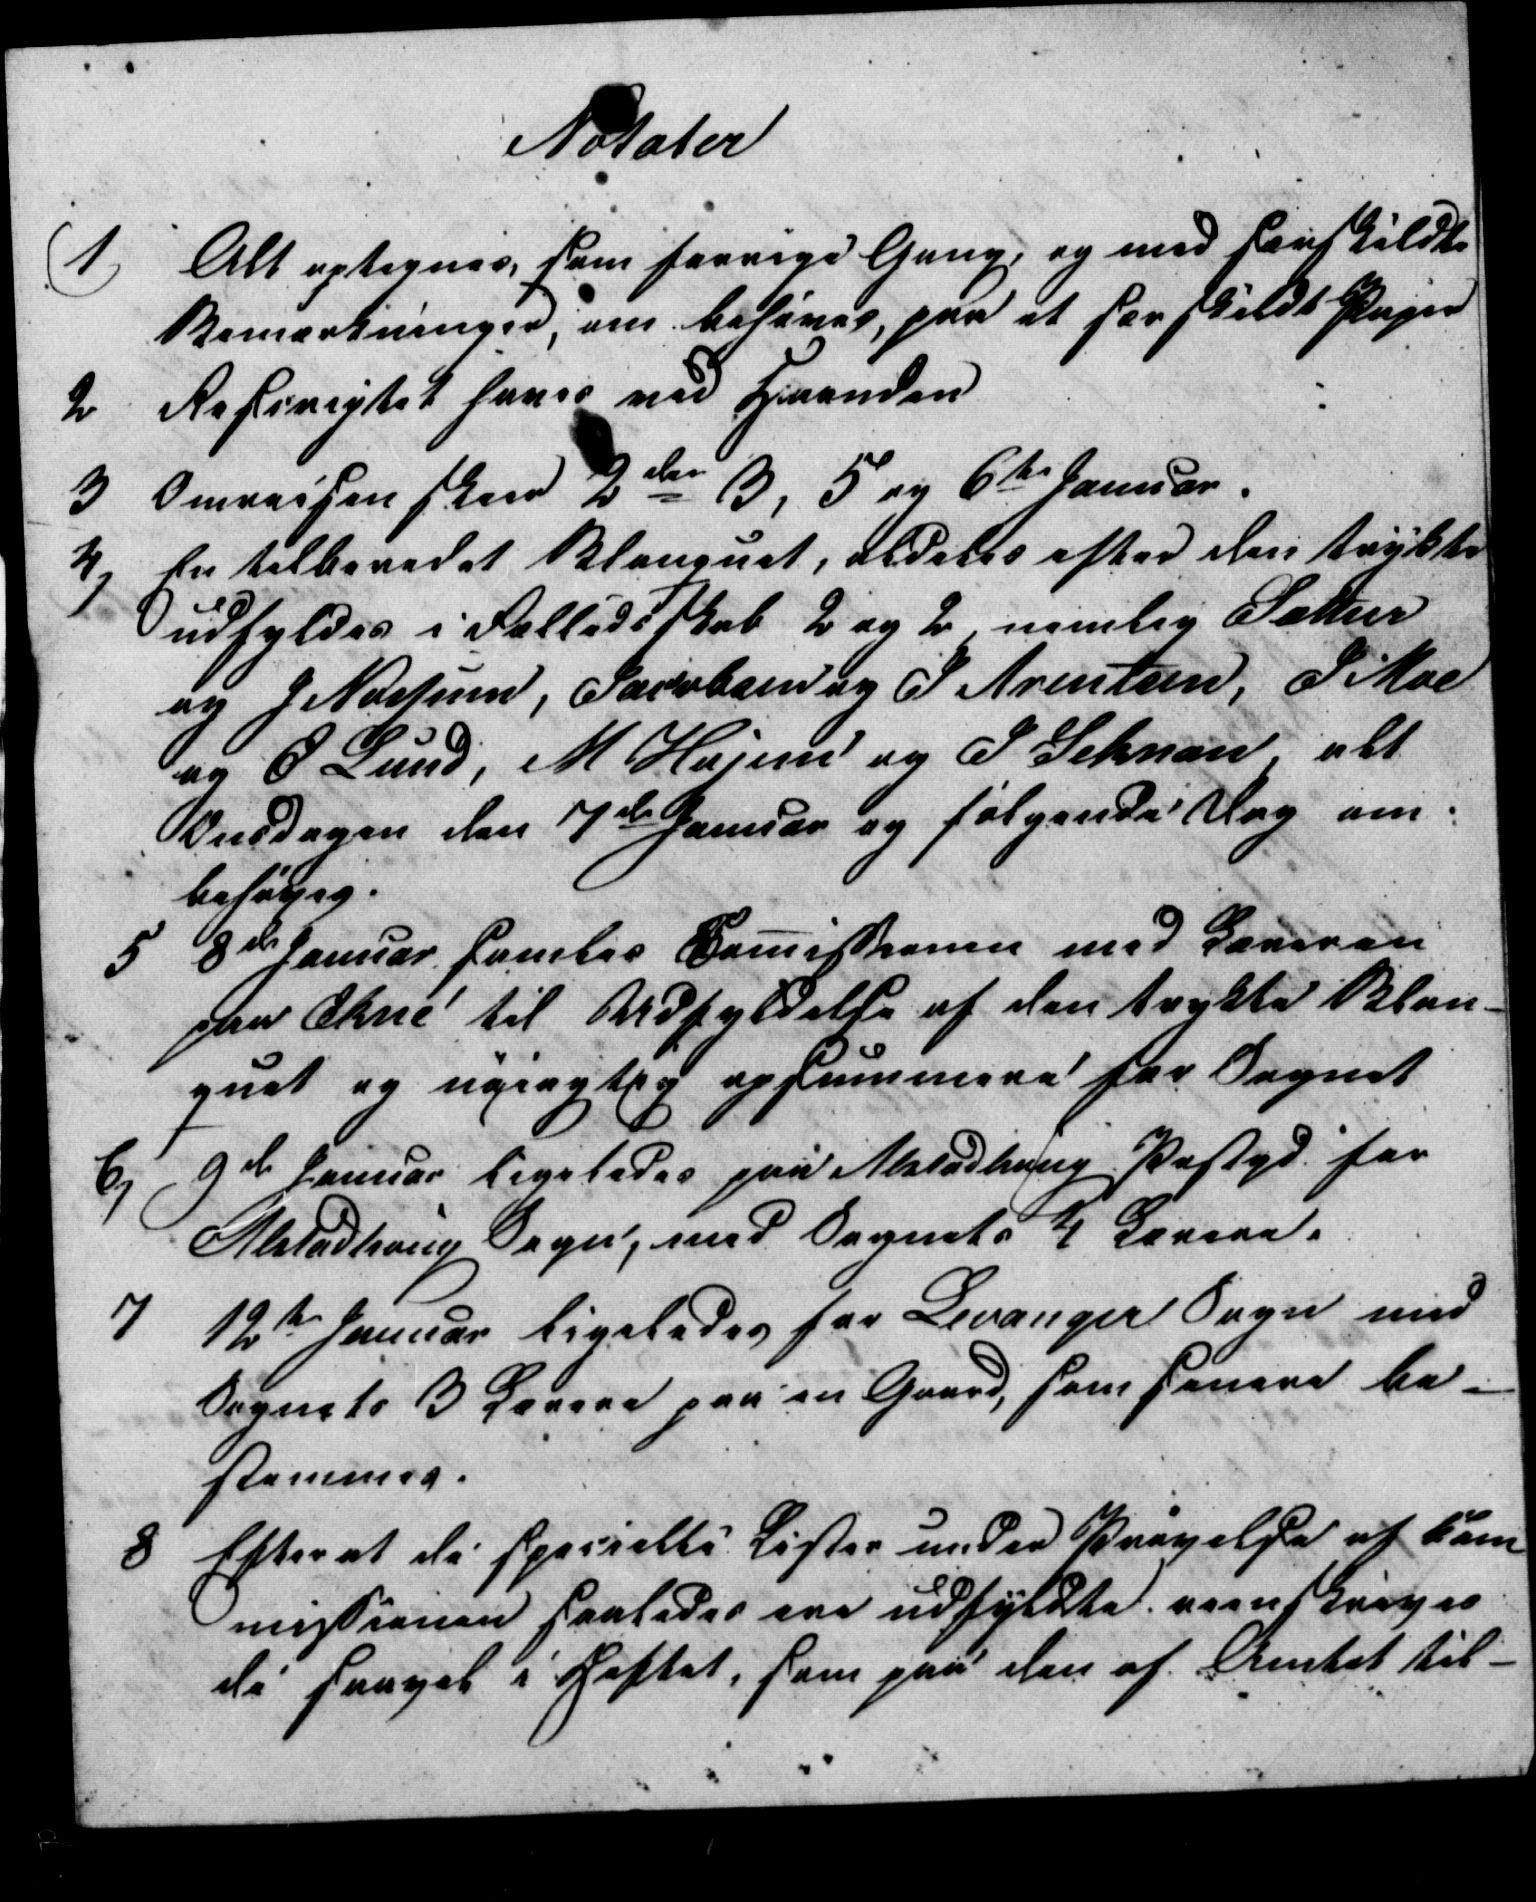 Notater
1, Alt optegnes, som forrige Gang, og med særskildte
Bemærkninger, om behøves, paa et særskildt Papir
2 Reskriptet haves ved Haanden
3 Omreisen skeer 2den 3, 5 og 6te Januar.
4, En tilberedet Blanquet, aldeles efter den trykte
udfyldes i Fælledsskab 2 og 2, nemlig
og J Nossum, Jacobsen og J Arentsen, J Moe
og O Lund, M Hojem og J Schnau, alt
Onsdagen den 7de Januar og følgende Dag om
behøves.
5 8de Januar samles Commissionen med Læreren
paa Ekne til Udfyldelse af den trykte Blan-
quet og nøiagtig opsummere for Sognet
6, 9de Januar ligeledes paa Alstadhaug Præstgd for
Alstadhaug Sogn, med Sognets 4 Lærere.
7 12te Januar ligeledes for Levanger Sogn med
Sognets 3 Lærere paa en Gaard, som senere be-
stemmes.
8 Efterat de specielle Lister under Prøvelse af Com
missionen saaledes ere udfyldte reenskrives
de saavel i Heftet, som paa den af Amtet til-